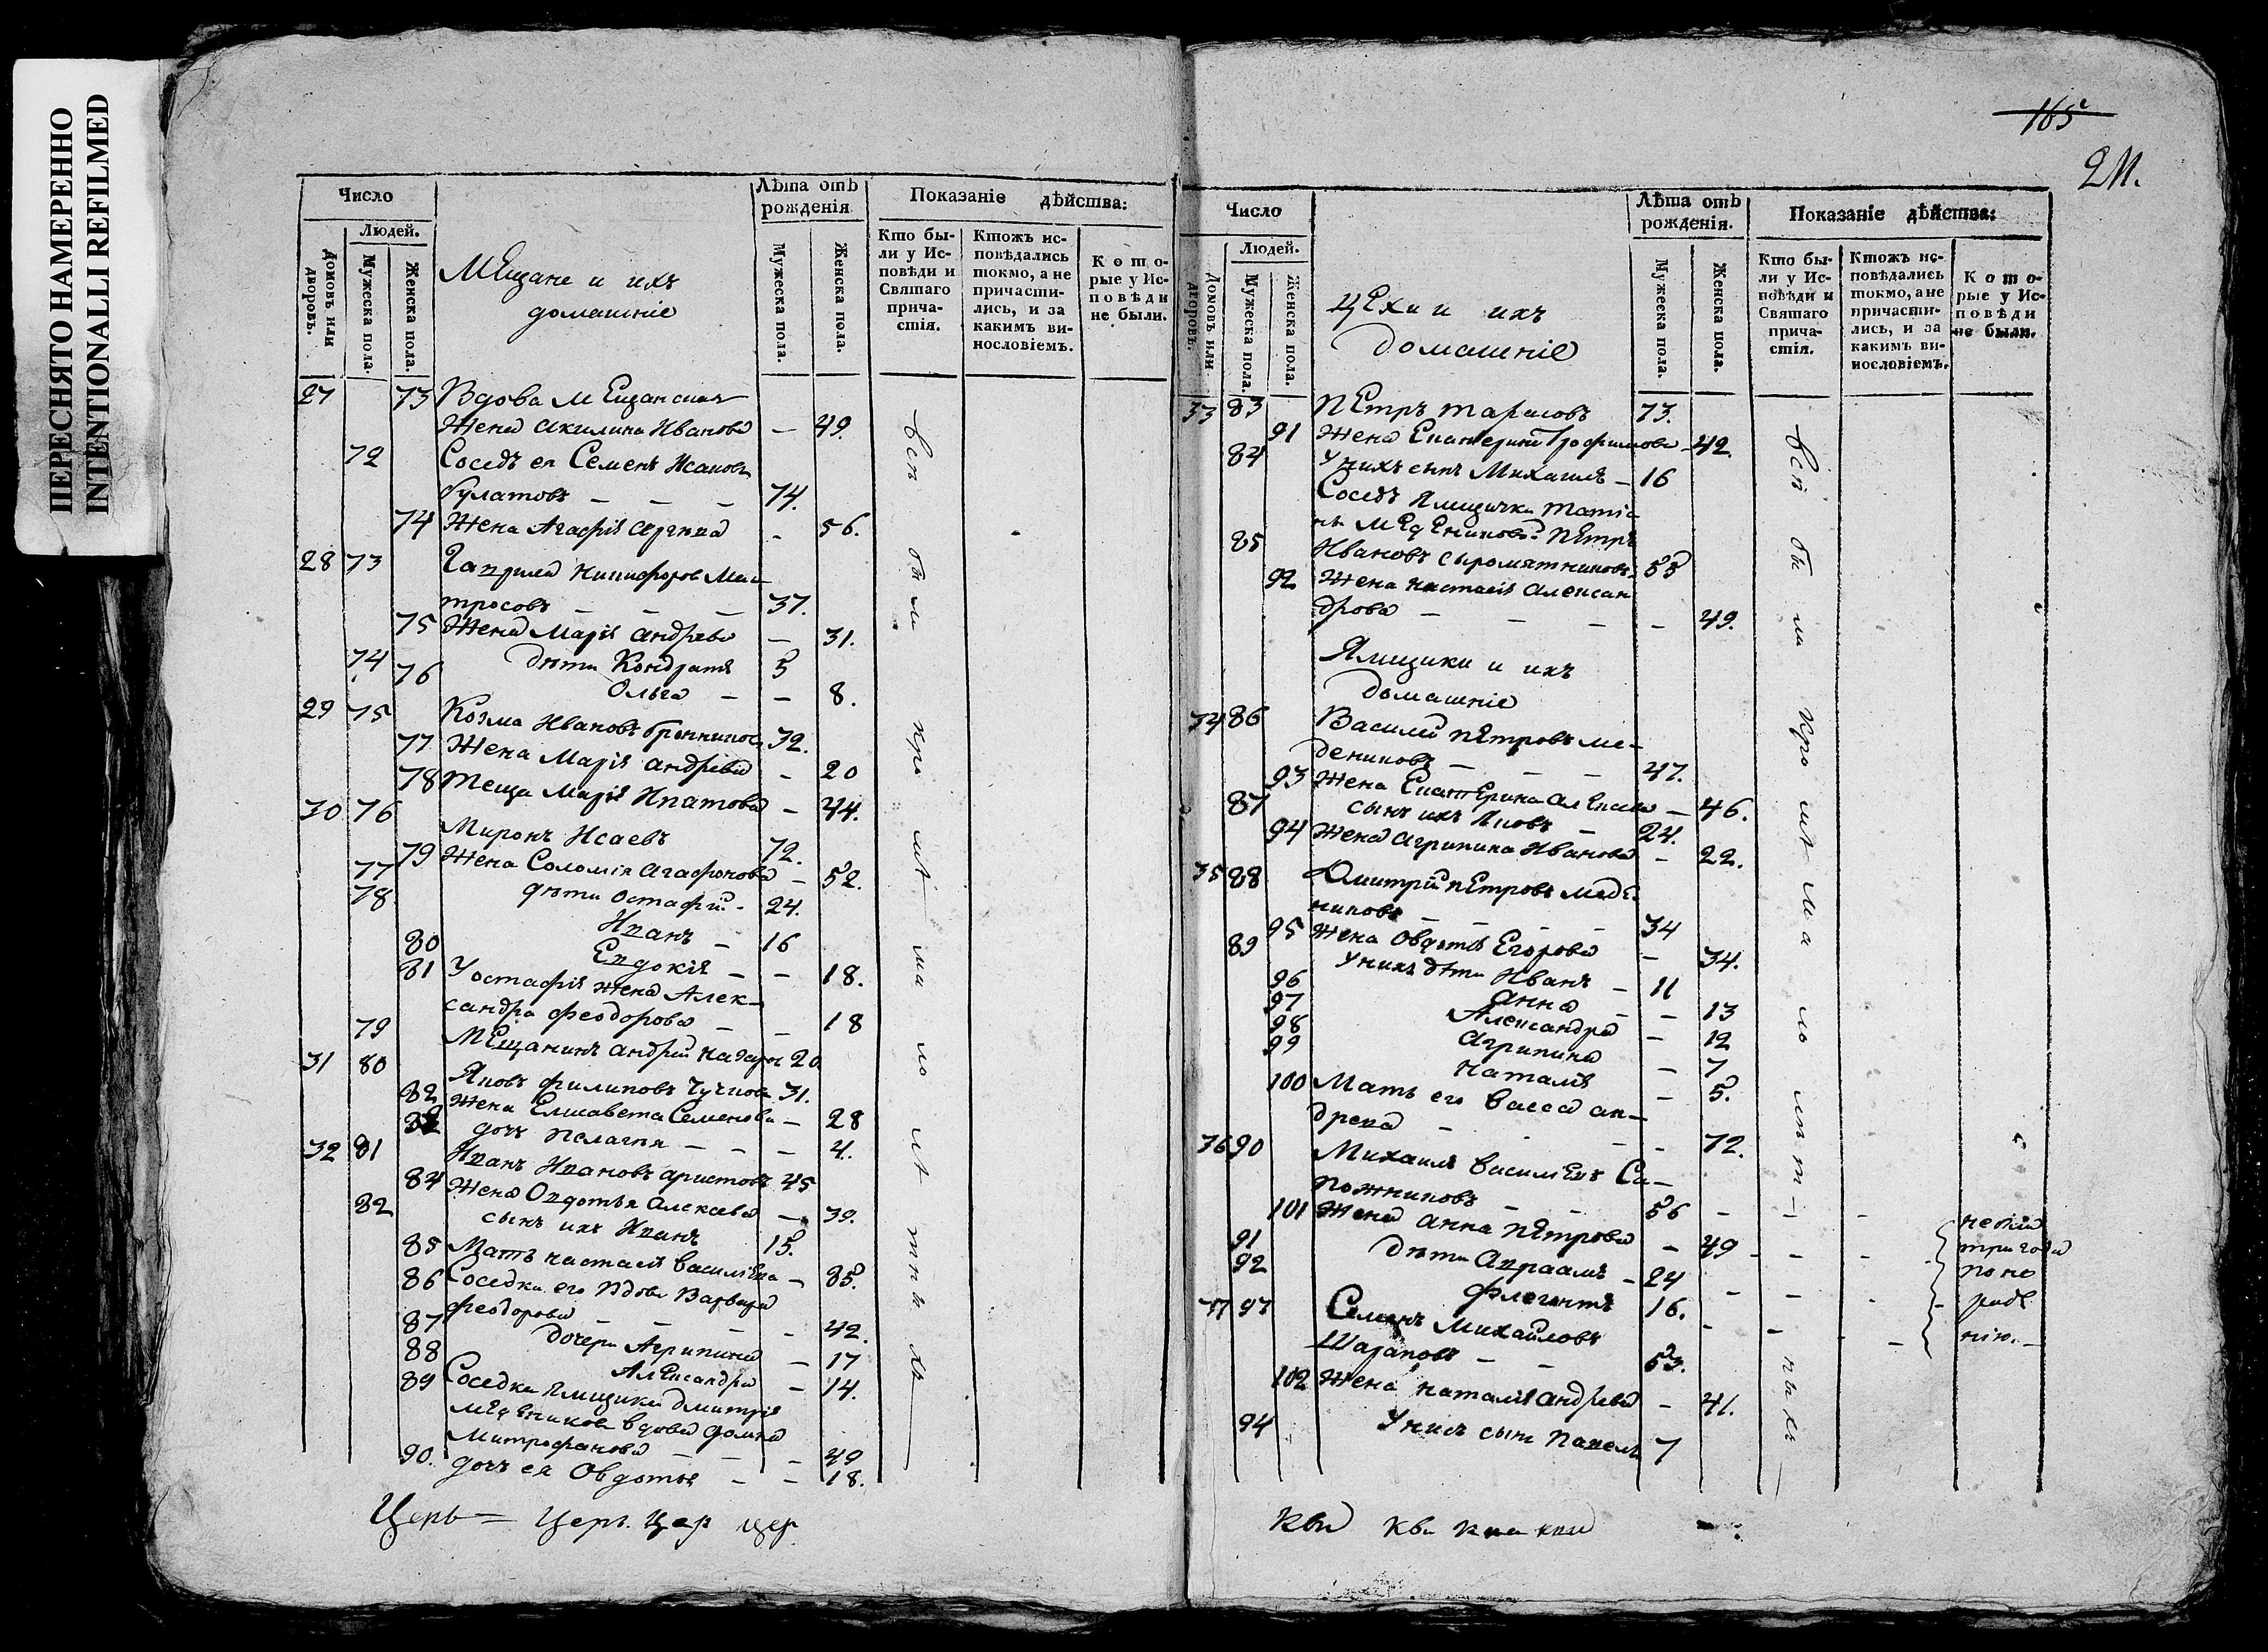 ПЕРЕСНЯТО НАМЕРЕННО
INTENTIONALLI REFILMED
165
211.
Число
Людей.
Домовъ или дворовъ.
Мужеска пола.
Женска пола.
Мещане и ихъ
домашніе
Лѣта отъ
рожденія
Мужеска пола.
Женска пола.
Показаніе дѣйства:
Кто бы-
ли у Ис-
повѣди и
Святаго
прича-
стія.
Ктожъ ис-
повѣдались
токмо, а не
причасти-
лись, и за
какимъ ви-
нословіемъ.
Кото-
рые у Ис-
повѣди
не были.
27 73 Вдова мещанская
Жена акилина Иванова — 49.
72 Соседъ ея Семенъ Исаковъ
булатовъ — — — 74.
74 Жена Агафія сергѣева - 56.
28 73 Гаврила Никифоров Мат-
тросовъ — — — 37.
75 Жена Марія андрева — 31.
74 76 дѣти Кондратей 5
Ольга — — 8.
29 75 Козма Ивановъ 32.
77 Жена Марія андрева - 20
78 теща Марія Ипатова — 44.
30 76 Миронъ Исаевъ 72.
79 Жена Соломія агафонова — 52.
77 дѣти остафій - 24.
78 Иванъ — 16
80 Евдокія — — 18.
81 У остафія жена Алек-
сандра феодорова — — 18
79 Мещанинъ андрей 20.
31 80 Яковъ филиповъ 31.
82 Жена Елисавета Семенова — 28
83 дочь пелагея — — — 4.
32 81 Иванъ Ивановъ аристовъ 45
84 Жена Овдотья алексева — 39.
82 сынъ ихъ Иванъ 15.
85 Мать настасія василева — 85.
86 Соседка его вдова Варвара
феодорова — — — - 42.
87 дочери Агрипина — 17
88 Александра — 14.
89 Соседка ямщика дмитрія
медѣникова вдова домна
Митрофанова — — - 49
90. дочь ея Овдотья — — 18.
всѣ были кромѣ малолѣтнихъ
Церк= Церк. Цер цер
Число
Людей.
Домовъ или дворовъ.
Мужеска пола.
Женска пола.
цехи и ихъ
домашніе
Лѣта отъ
рожденія.
Мужеска пола.
Женска пола.
Показаніе дѣйства:
Кто бы-
ли у Ис-
повѣди и
Святаго
прича-
стія.
Ктожъ ис-
повѣдались
токмо, а не
причасти-
лись, и за
какимъ ви-
нословіемъ.
Кото-
рые у Ис-
повѣди
не были.
33 83 Петръ тарасовъ 73.
91 Жена Екатерина Трофимова — 42.
84 У нихъ сынъ Михаилъ — 16
Соседъ ямщички татіа-
ны медениковой Петръ
85 Ивановъ сыромятниковъ 55
92 Жена настасія алексан
дрова — — — — 49.
Ямщики и ихъ
домашніе
34 86 Василей петровъ ме-
дениковъ — — — 47.
93 Жена Екатерина алексева — 46.
87 сынъ ихъ Яковъ — 24.
94 Жена агрипина Иванова - 22.
35 88 Дмитрій петровъ меде-
никовъ — — — 34
95 Жена овдотья Егорова — 34.
89 У нихъ дѣти Иванъ — 11
96 анна — — 13
97 Александра — 12
98 агрипина — 7
99 наталія — 5.
100 Мать его васса ан-
древа — — 72.
36 90 Михаилъ василевъ Са-
пожниковъ — — 56
101 Жена анна петрова — 49
91 дѣти авраамъ — 24
92 флегонтъ 16.
37 93 Семенъ Михайловъ
Шараповъ — — 53.
102 Жена наталія андрева — 41.
94 У нихъ сынъ павелъ 7
всѣ были кромѣ малолѣтнихъ
небыли
три года
по не
радѣ
нію.